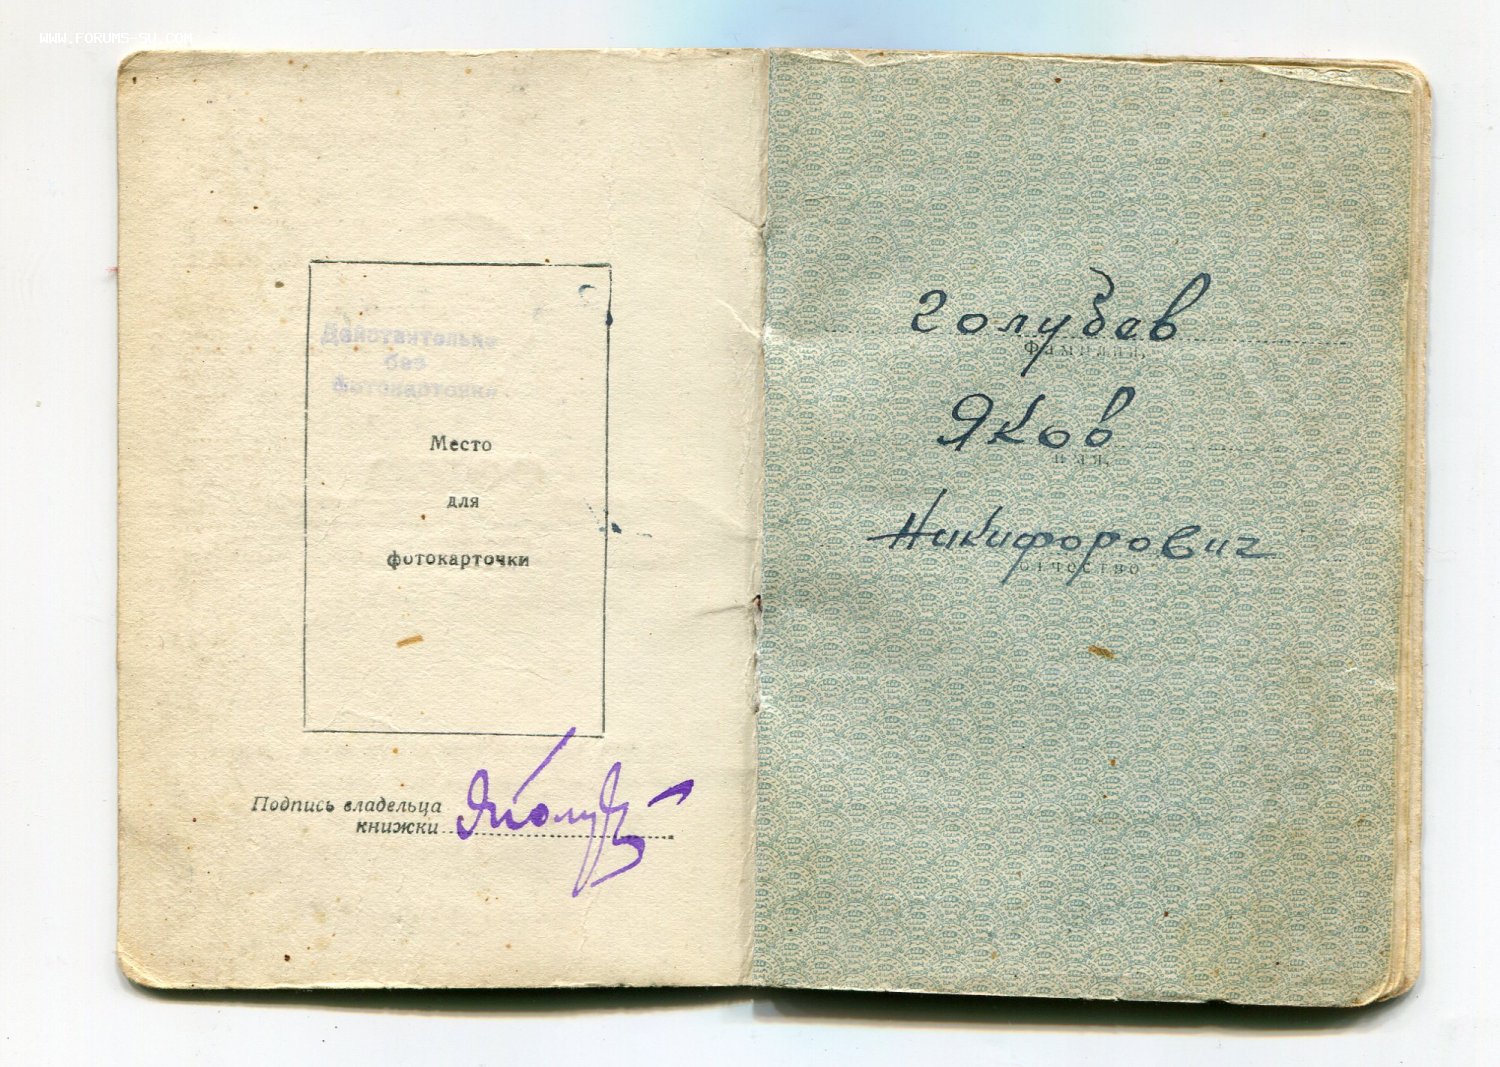 WWW.FORUMS-SU.COM
Действительно
без
фотокарточки
Место
для
фотокарточки
Подпись владельца
книжки
Голубев
Фамилия
Яков
имя,
Никифорович
отчество